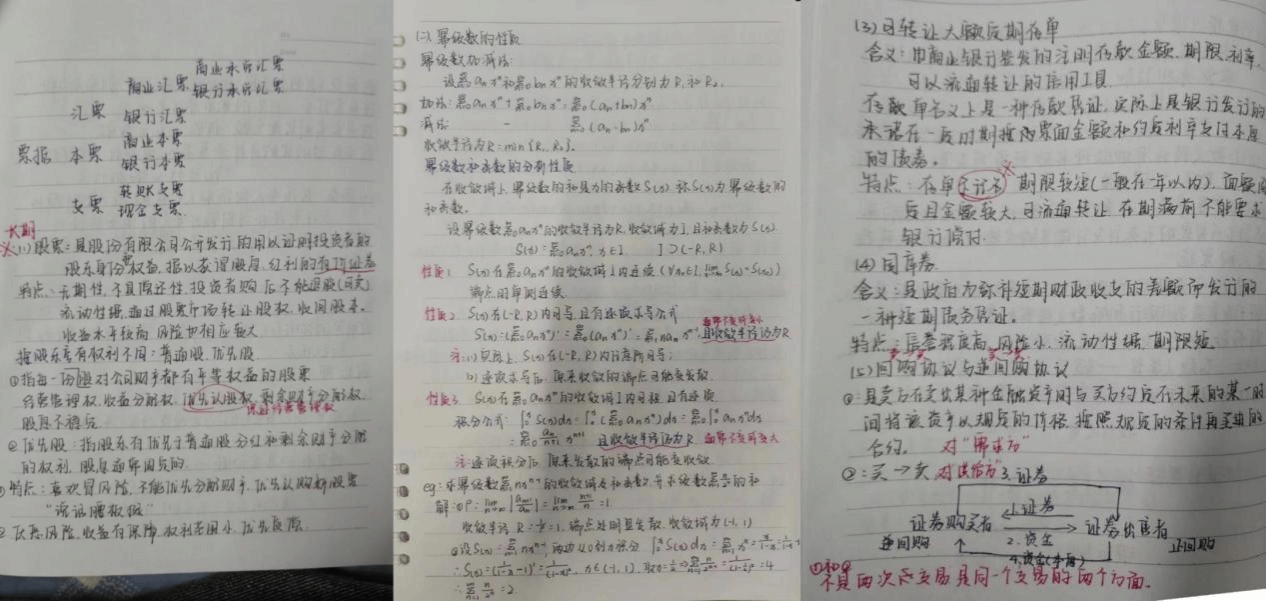 商业承兑汇票
商业汇票 银行承兑汇票
汇票 银行汇票
商业本票
票据 本票 银行本票
转账支票
支票 现金支票
长期
(1)股票:是股份有限公司公开发行的用以证明投资者的
股东身份权益,据以获得股息、红利的有价证券
特点:无期性,不具原还性,投资者购后不能退股(可卖)
流动性强,通过股票市场转让股权,收回股本。
收益水平较高 风险也相应较大
按股东享有权利不同:普通股、优先股
①指每一份额对公司财产都有平等权益的股票
经营管理权、收益分配权、优先认股权、剩余财产分配权
股息不稳定
②优先股:指股东有优先于普通股分红和剩余财产分配
的权利,股息通常固定的
①特点:喜欢冒风险,不能优先分配财产,优先认购新股票
②厌恶风险,收益有保障,权利范围小,优先
(二)、幂级数的性质
幂级数加减法:
设∑aₙxⁿ和∑bₙxⁿ的收敛半径分别为R₁和R₂,
加法:∑aₙxⁿ+∑bₙxⁿ=∑(aₙ+bₙ)xⁿ
减法: - ∑(aₙ-bₙ)xⁿ
收敛半径为R=min{R₁,R₂}.
幂级数和函数的分析性质
在收敛域上,幂级数的和是x的函数S(x),称S(x)为幂级数的
和函数。
设幂级数∑aₙxⁿ的收敛半径为R,收敛域为I,且和函数为S(x)
S(x)=∑aₙxⁿ, x∈I. I⊃(-R,R)
性质1 S(x)在∑aₙxⁿ的收敛域I内连续(∀x₀∈I, lim S(x)=S(x₀))
端点的单侧连续
性质2 S(x)在(-R,R)内可导,且有逐项求导公式
S'(x)=(∑aₙxⁿ)'=∑(aₙxⁿ)'=∑naₙxⁿ⁻¹,且收敛半径仍为R
注:(1)实际上,S(x)在(-R,R)内任意阶可导;
(2)逐项求导后,原来收敛的端点可能变发散
性质3 S(x)在∑aₙxⁿ的收敛域I内可积,且有逐项
积分公式:∫S(x)dx=∫(∑aₙxⁿ)dx=∑∫aₙxⁿdx
=∑aₙ/(n+1) xⁿ⁺¹ 且收敛半径仍为R
注:逐项积分后,原来发散的端点可能变收敛
eg:求幂级数∑nxⁿ⁻¹的收敛域及和函数,并求级数∑的和
解:ρ=lim|aₙ₊₁/aₙ|=lim (n+1)/n=1
收敛半径R=1/ρ=1,端点处明显发散,收敛域为(-1,1)
②设S(x)=∑nxⁿ⁻¹,两边从0到x积分
(3)可转让大额定期存单
含义:由商业银行签发的注明存款金额、期限、利率,
可以流通转让的信用工具.
存款单名义上是一种存款凭证,实际上是银行发行的
承诺在一定时期按票面金额和约定利率支付本息
的债券。
特点:存单不记名 期限较短(一般在一年以内),面额固
定且金额较大,可流通转让,在期满前不能要求
银行偿付.
(4)国库券
含义:是政府为弥补短期财政收支的差额而发行的
一种短期债务凭证。
特点:信誉程度高,风险小,流动性强,期限短
(5)回购协议与逆回购协议
①:是卖方在卖出某种金融资产同时与买方约定在未来的某一时
间将该资产以规定的价格,按照规定的条件再买回的
合约。 对"需求方"
②:买→卖 对"供给方" 3.证券
1.证券
证券购买者 证券出售者
逆回购 2.资金 正回购
4.资金(本息)
①和②
不是两次而交易是同一个交易的两个方面.